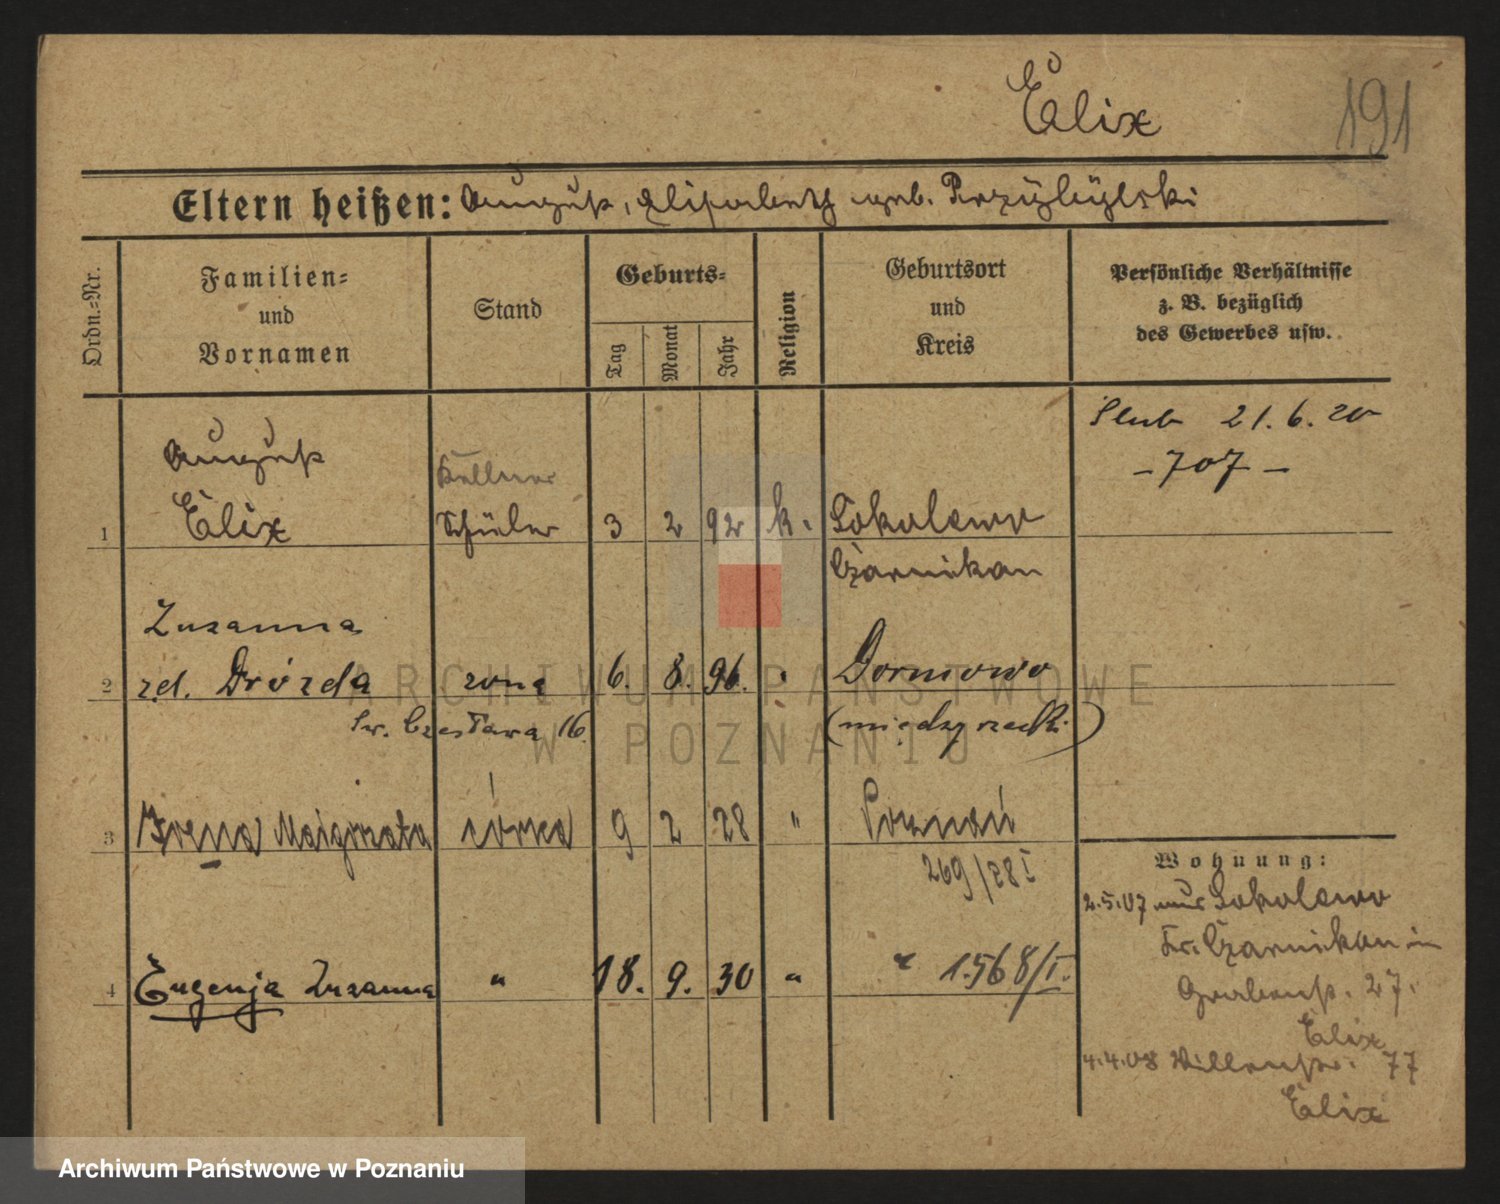 Elix
191
Eltern heißen: August, Elisabeth geb. Przybylski
Ordn.-Nr.
Familien-
und
Vornamen
Stand
Geburts-
Tag
Monat
Jahr
Religion
Geburtsort
und
Kreis
Persönliche Verhältnisse
z. B. bezüglich
des Gewerbes usw.
Slub 21.6.20
- 707 -
August
Kellner
1 Elix Schüler 3 2 92 k. Sokolewo
Czarnikau
Zuzanna
2 zd. Drózda zona 6. 8. 96. " Gorniowo
Sw. Czesława 16. (międzyrzecki)
3 Irena Małgorzata córka 9 2 28 " Poznań
269/28 I
4 Eugenja Zuzanna " 18. 9. 30 " " 1568/I.
Wohnung:
2.5.07 aus Sokolewo
Kr. Czarnikau in
Grabenstr. 27.
Elix
4.4.08 77
Elix
ARCHIWUM PAŃSTWOWE
W POZNANIU
Archiwum Państwowe w Poznaniu